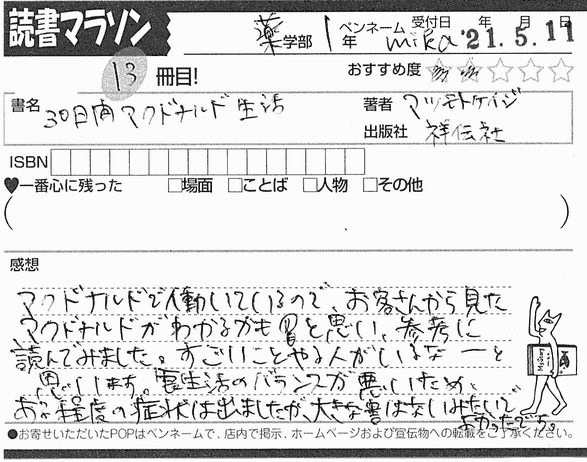 読書マラソン
薬学部 1年 ペンネーム mika 受付日 '21年5月11日
13冊目!
おすすめ度
書名 30日間マクドナルド生活
著者 マツモトケイジ
出版社 祥伝社
ISBN
♥一番心に残った □場面 □ことば □人物 □その他
感想
マクドナルドで働いているので、お客さんから見た
マクドナルドがわかるかも と思い、参考に
読んでみました。すごいことやる人がいるなーと
思います。食生活のバランスが悪いため、
ある程度の症状は出ましたが、大きな害はないみたいで
よかったです。
●お寄せいただいたPOPはペンネームで、店内で掲示、ホームページおよび宣伝物への転載をご了承ください。